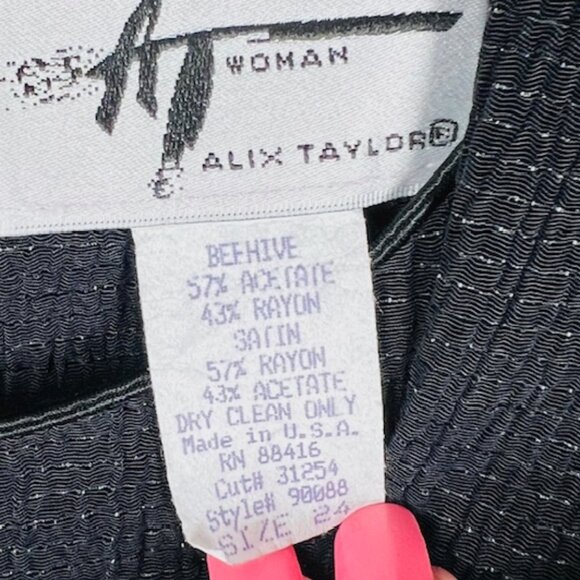 AT
WOMAN
ALIX TAYLOR®
BEEHIVE
57% ACETATE
43% RAYON
SATIN
57% RAYON
43% ACETATE
DRY CLEAN ONLY
Made in U.S.A.
RN 88416
Cut# 31254
Style# 90088
SIZE 24